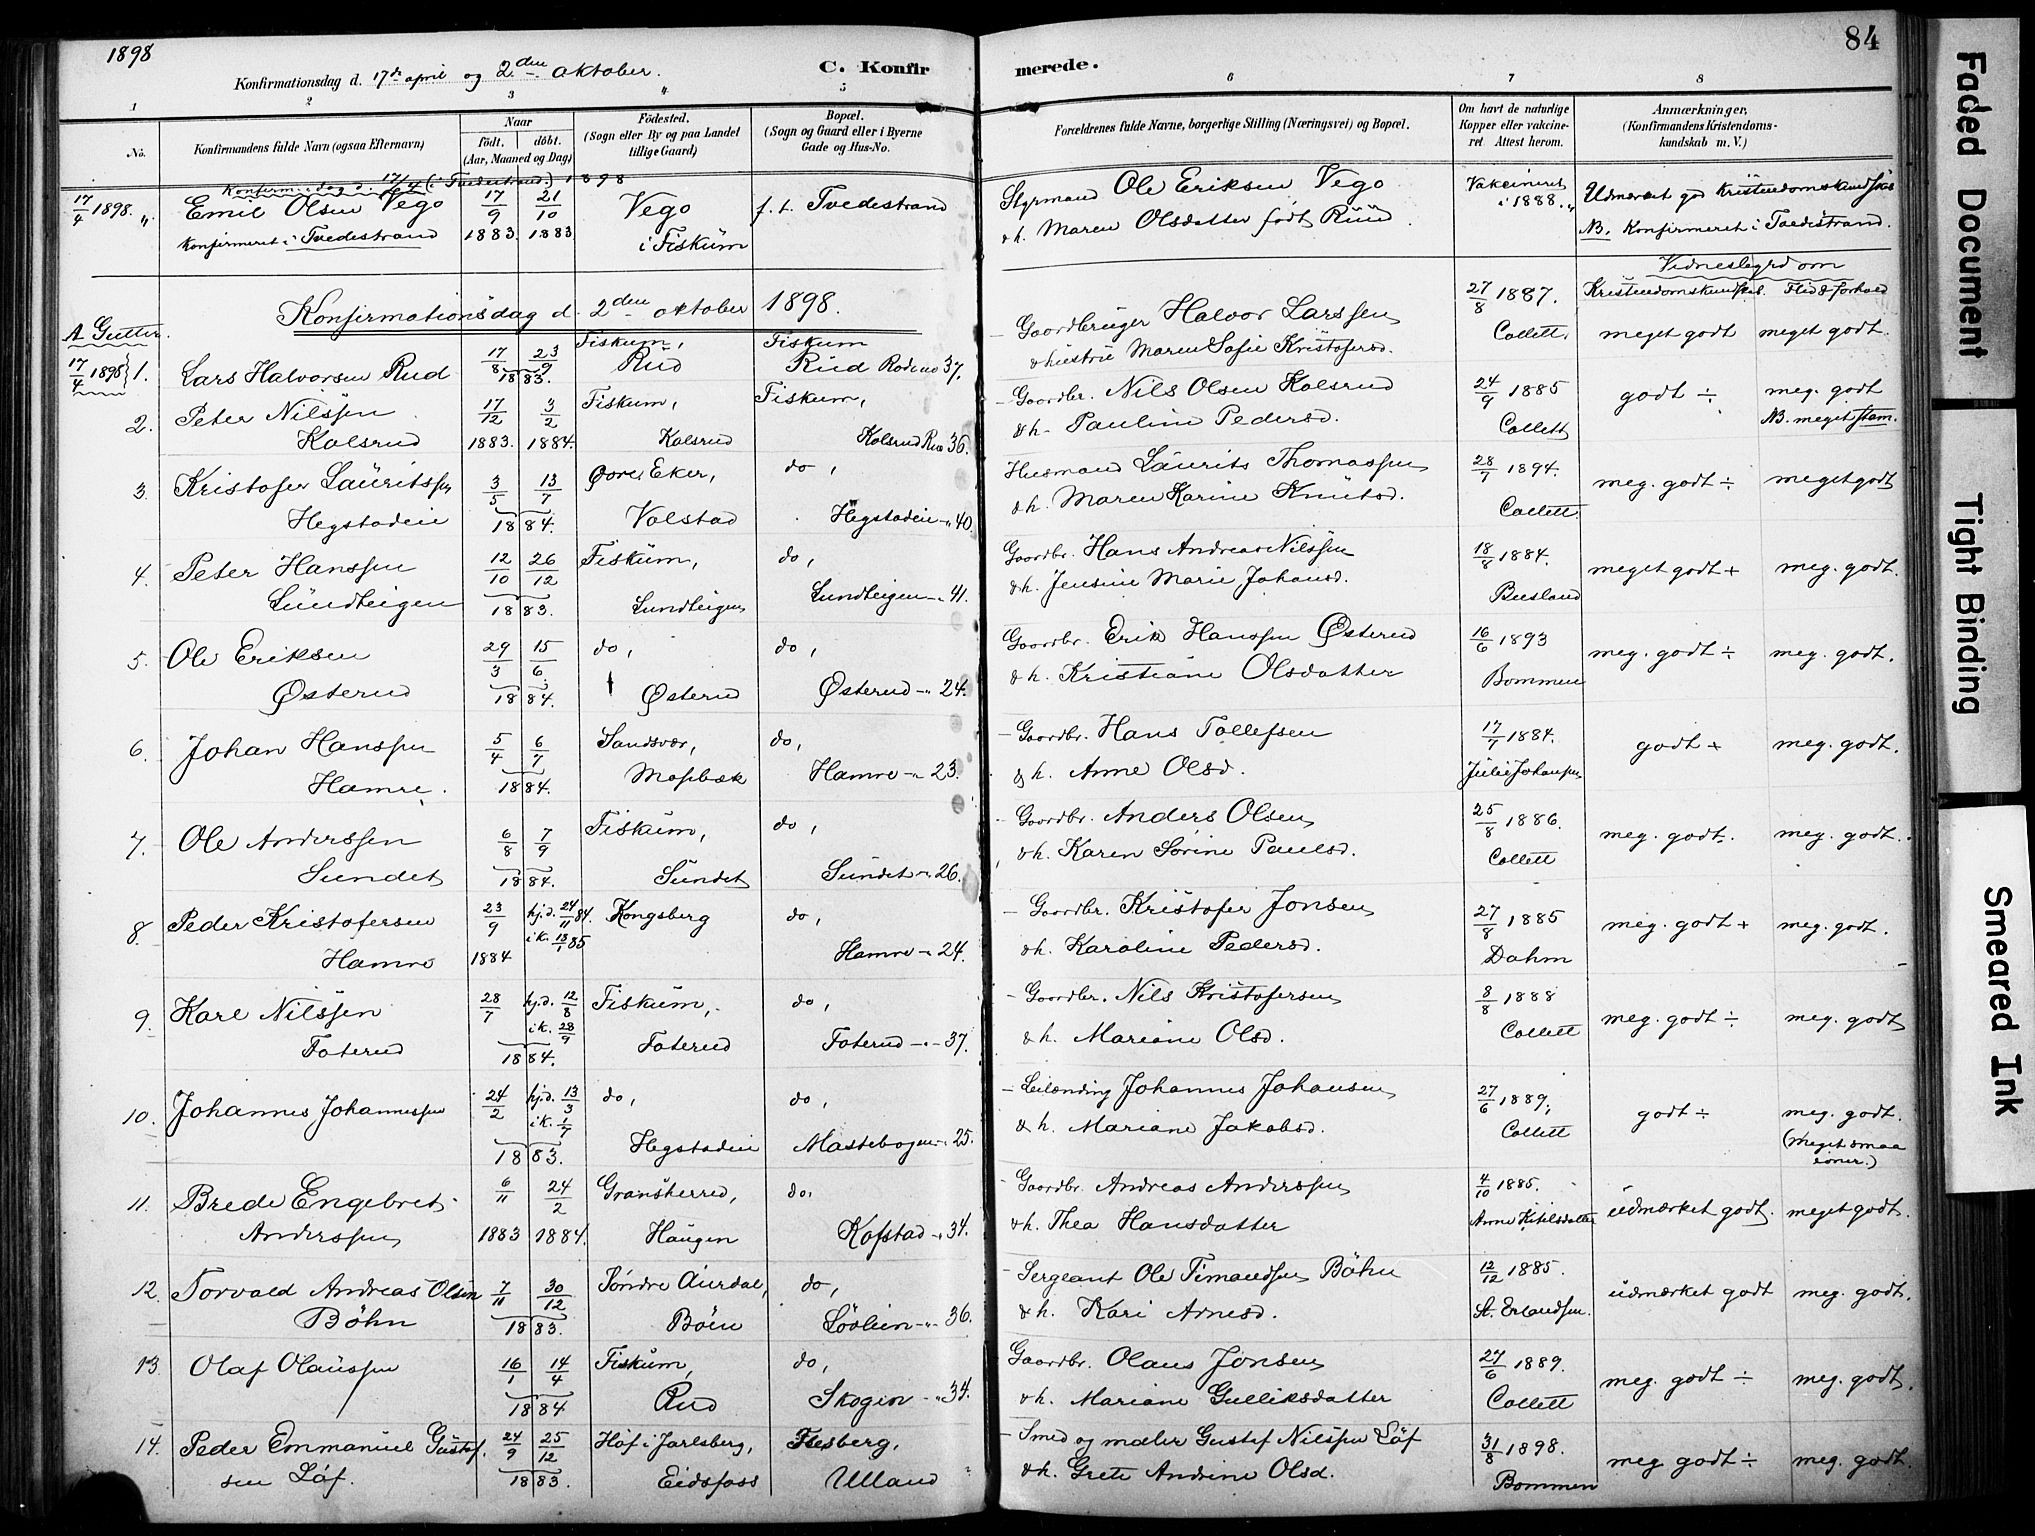 1898
84
Konfirmationsdag d. 17de april og 2den oktober.
C. Konfir merede.
1 2 3 4 5 6 7 8
No.
Konfirmandens fulde Navn (ogsaa Efternavn)
Naar
födt. döbt.
(Aar, Maaned og Dag)
Födested.
(Sogn eller By og paa Landet
tillige Gaard)
Bopæl.
(Sogn og Gaard eller i Byerne
Gade og Hus-No.
Forældrenes fulde Navne, borgerlige Stilling (Næringsvei) og Bopæl.
Om havt de naturlige
Kopper eller vakcine-
ret Attest herom.
Anmærkninger,
(Konfirmandens Kristendoms-
kundskab m. V.)
Konfirm.dag d. 17/4 (i Tvedestrand.) 1898
17/4 1898. " Emil Olsen Vego 17/9 21/10 Vego f. t. Tvedestrand Styrmand Ole Eriksen Vego Vakcineret Udmærket god Kristendomskundskab
konfirmeret i Tvedestrand 1883. 1883 i Fiskum & h. Maren Olsdatter født Ruud i 1888. " NB. Konfirmeret i Tvedestrand.
Konfirmationsdag d. 2den oktober 1898.
Vidnesbyrd om
Kristendomskundskab. Flid & forhold
A. Gutter.
17/4 1898 } 1. Lars Halvorsen Rud 17/8 23/9 Fiskum, Fiskum Gaardbruger Halvor Larssen 27/8 1887. meget godt meget godt.
1883. Rud Rud Rode no 37. & hustru Maren Sofie Kristofersd. Collett.
2. Peter Nilssen 17/12 3/2 Fiskum, Fiskum, Gaardbr. Nils Olsen Kolsrud 24/9 1885 godt ÷ meg. godt
Kolsrud 1883. 1884. Kolsrud Kolsrud 36. & h. Pauline Pedersd. Collett NB. meget stam.
3. Kristofer Lauritssen 3/5 13/7 Øvre Eker, do, Husmand Laurits Thomassen 28/7 1894. meg. godt ÷ meget godt
Hegstadeie 1884. Volstad Hegstadeie " 40. & h. Maren Karine Knutsd. Collett.
4. Peter Hanssen 12/10 26/12 Fiskum, do, Gaardbr. Hans Andreas Nilssen 18/8 1884. meget godt + meg. godt.
Lundteigen 1883. Lundteigen Lundteigen " 41. & h. Jensine Marie Johansd.
5. Ole Eriksen 29/3 15/6 do, do, Gaardbr. Erik Hanssen Østerud 16/6 1893 meg. godt ÷ meg. godt.
Østerud 1884. Østerud Østerud " 24. & h. Kristiane Olsdatter Bommen
6. Johan Hanssen 5/4 6/7 Sandsvær, do, Gaardbr. Hans Tollefsen 17/7 1884. godt + meg. godt.
Hamre. 1884. Mosbæk Hamre " 23. & h. Anne Olsd. Julie Johansen
7. Ole Anderssen 6/8 7/9 Fiskum, do, Gaardbr. Anders Olsen 25/8 1886. meg. godt. meg. godt.
Sundet 1884. Sundet Sundet " 26. & h. Karen Sørine Paulsd. Collett
8. Peder Kristofersen 23/9 hj.d. 24/11 84. Kongsberg do, Gaardbr. Kristofer Jonsen 27/8 1885 meg. godt + meg. godt.
Hamre 1884 i k. 18/1 85 Hamre " 24. & h. Karoline Pedersd. Dahm
9. Karl Nilssen 28/7 hj.d. 12/8 Fiskum, do, Gaardbr. Nils Kristofersen 8/8 1888 meg. godt ÷ meg. godt
Foterud i k. 28/9 1884. Foterud Foterud " 37. & h. Mariane Olsd. Collett
10. Johannes Johannessen 24/2 hj.d. 13/3 do, do, Leilænding Johannes Johansen 27/6 1889. godt ÷ meg. godt.
i k. 1/7 1883. Hegstadeie Mastebogen " 25. & h. Mariane Jakobsd. Collett (Meget smaa evner.)
11. Brede Engebret 6/11 24/2 Gransherred, do, Gaardbr. Andreas Anderssen 4/10 1885. udmærket godt. meget godt.
Anderssen 1883 1884. Haugen Kofstad " 34. & h. Thea Hansdatter Anne Ketilsdatter
12. Torvald Andreas Olsen 7/11 30/12 Søndre Aurdal, do, Sergeant Ole Timandsen Böhn 12/12 1885. udmærket godt meg. godt.
Böhn 1883. Böen Løvlien " 36. & h. Kari Arnesd. St. Erlandsen.
13. Olaf Olaussen 16/1 14/4 Fiskum, do, Gaardbr. Olaus Jonsen 27/6 1889. meg. godt ÷ meg. godt.
1884 Rud Skogen " 34. & h. Mariane Gulliksdatter Collett
14. Peder Emmanuel Gustaf- 24/9 25/12 Hof i Jarlsberg, Flesberg, Smed og maler Gustaf Nilssen Löf 31/8 1898. meg godt ÷ meg. godt.
sen Löf. 1883. Eidsfoss Ulland & h. Grete Andrine Olsd. Bommen
Faded Document
Tight Binding
Smeared Ink